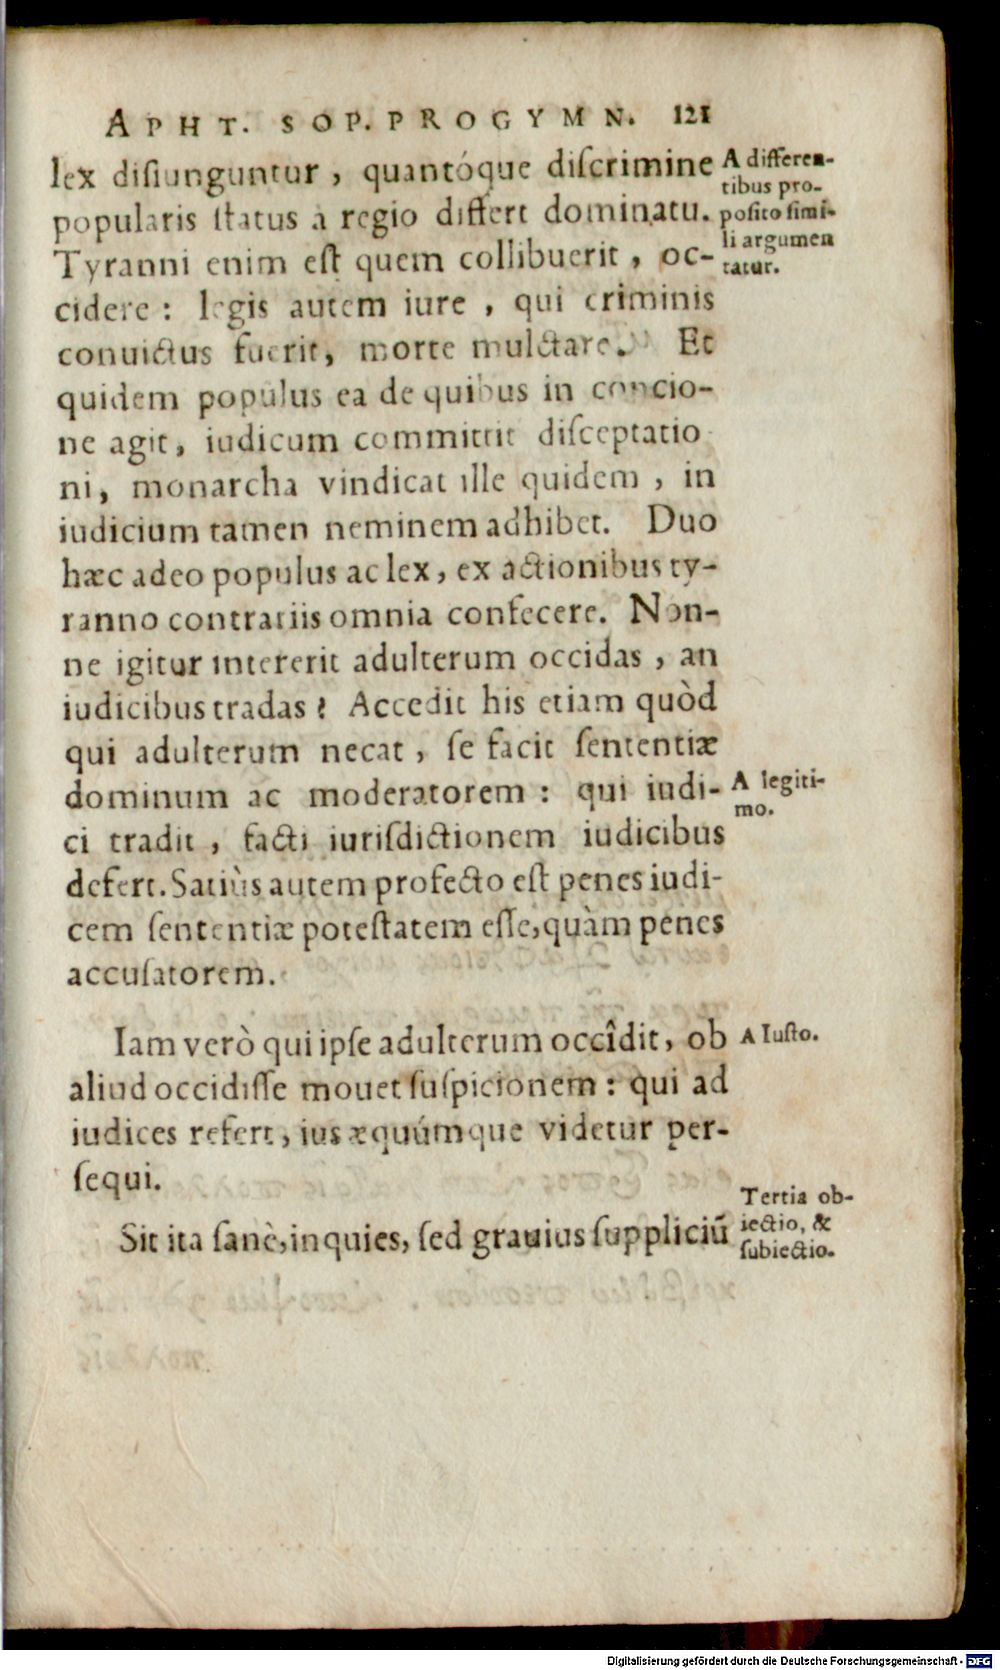 APHT. SOP. PROGYMN. 121
lex disiunguntur, quantóque discrimine
popularis status à regio differt dominatu.
Tyranni enim est quem collibuerit, oc-
cidere: legis autem iure, qui criminis
conuictus fuerit, morte mulctare. Et
quidem populus ea de quibus in concio-
ne agit, iudicum committit disceptatio
ni, monarcha vindicat ille quidem, in
iudicium tamen neminem adhibet. Duo
hæc adeo populus ac lex, ex actionibus ty-
ranno contrariis omnia confecere. Non-
ne igitur intererit adulterum occidas, an
iudicibus tradas? Accedit his etiam quòd
qui adulterum necat, se facit sententiæ
dominum ac moderatorem: qui iudi-
ci tradit, facti iurisdictionem iudicibus
defert. Satiùs autem profecto est penes iudi-
cem sententiæ potestatem esse, quàm penes
accusatorem.
Iam verò qui ipse adulterum occîdit, ob
aliud occidisse mouet suspicionem: qui ad
iudices refert, ius æquúmque videtur per-
sequi.
Sit ita sanè, inquies, sed grauius suppliciū
A differen-
tibus pro-
posito simi-
li argumen
tatur.
A legiti-
mo.
A Iusto.
Tertia ob-
iectio, &
subiectio.
Digitalisierung gefördert durch die Deutsche Forschungsgemeinschaft - DFG